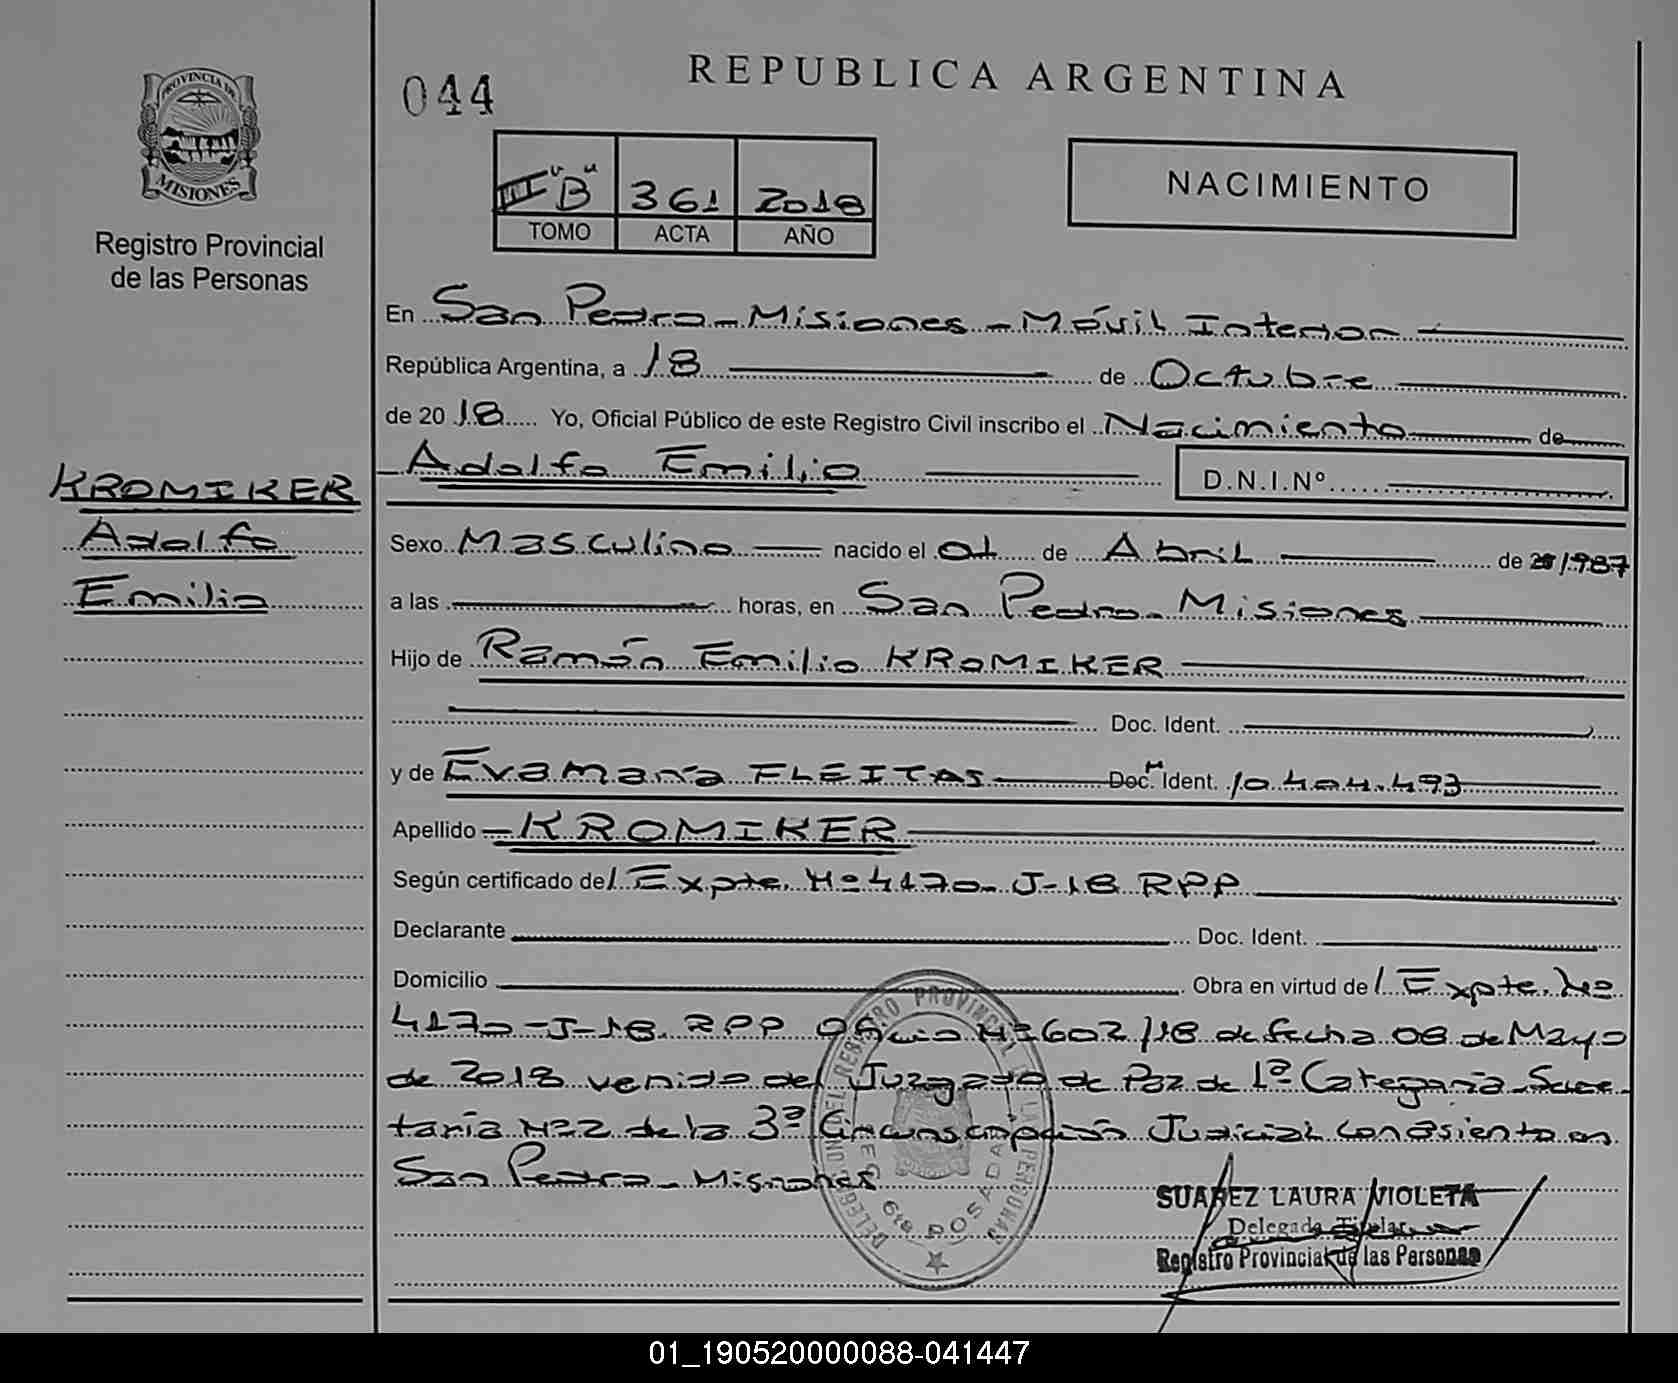 PROVINCIA DE
MISIONES
Registro Provincial
de las Personas
KROMIKER
Adolfo
Emilio
044
REPUBLICA ARGENTINA
III "B" 361 2018
TOMO ACTA AÑO
NACIMIENTO
En San Pedro - Misiones - Móvil Interior
República Argentina, a 18 de Octubre
de 20 18 Yo, Oficial Público de este Registro Civil inscribo el Nacimiento de
Adolfo Emilio D.N.I.Nº
Sexo Masculino nacido el 01 de Abril de 1987
a las horas, en San Pedro - Misiones
Hijo de Ramón Emilio KROMIKER
Doc. Ident.
y de Eva María FLEITAS Doc. Ident. 10.404.493
Apellido KROMIKER
Según certificado del Expte. Nº 4170-J-18 RPP
Declarante Doc. Ident.
Domicilio Obra en virtud del Expte. Nº
4170-J-18 RPP Oficio Nº 602/18 de fecha 08 de Mayo
de 2018 venido del Juzgado de Paz de 1ª Categoría - Secre-
taría Nº 2 de la 3ª Circunscripción Judicial con asiento en
San Pedro - Misiones
SUAREZ LAURA VIOLETA
Delegada Titular
Registro Provincial de las Personas
01_190520000088-041447